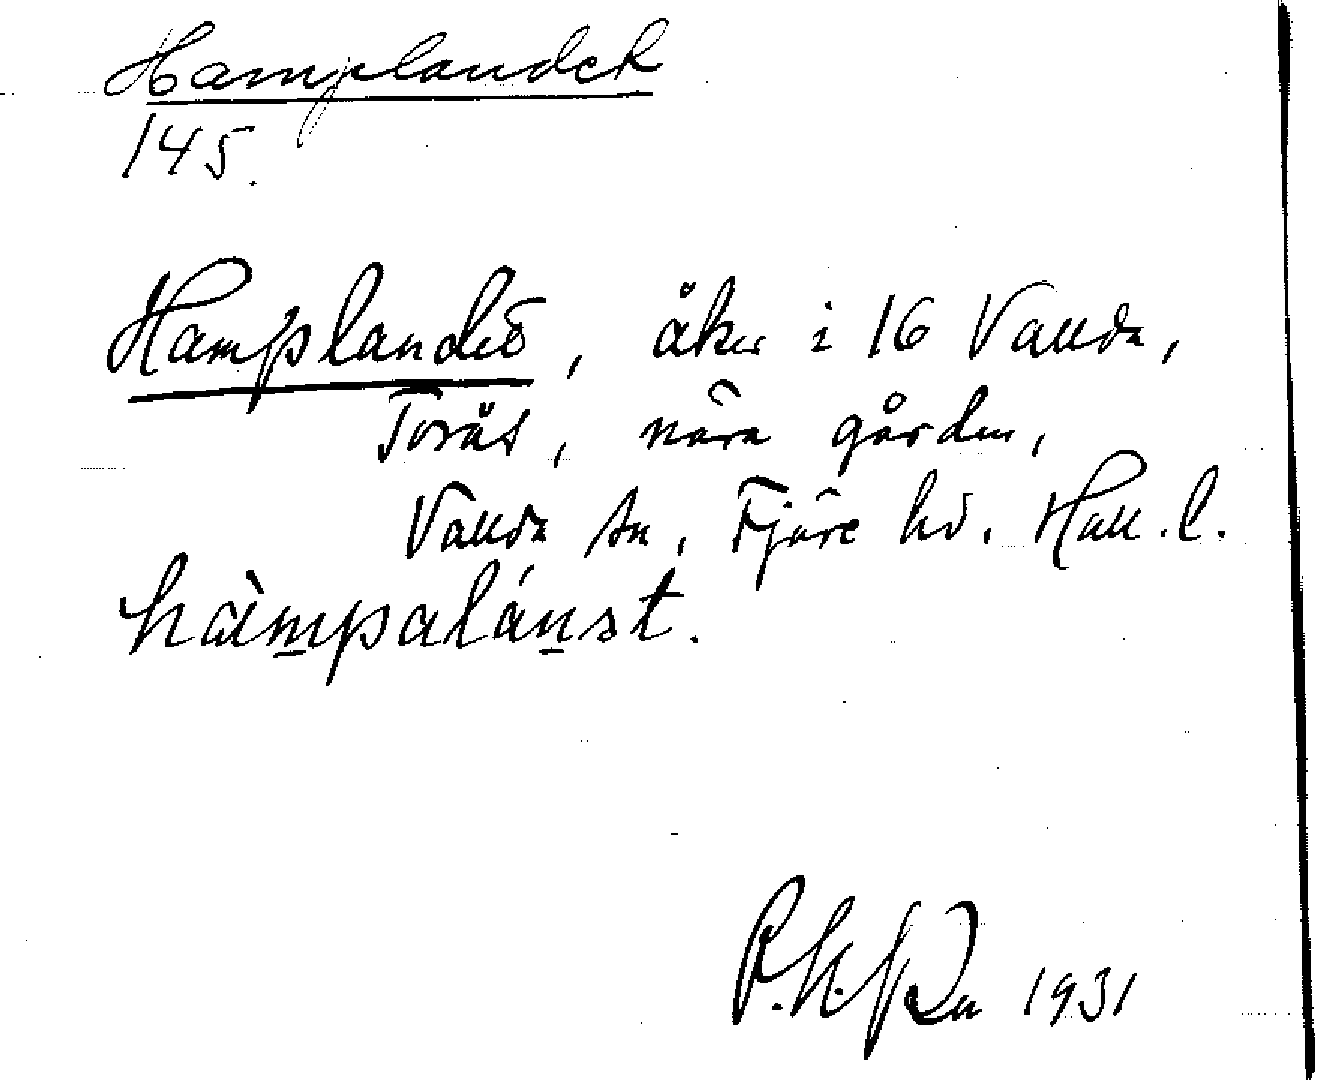 Hamplandet
145.
Hamplandet, åker i 16 Vallda,
Toräs, nära gården,
Vallda sn, Fjäre hd. Hall. l.
hàmpalánst.
1931